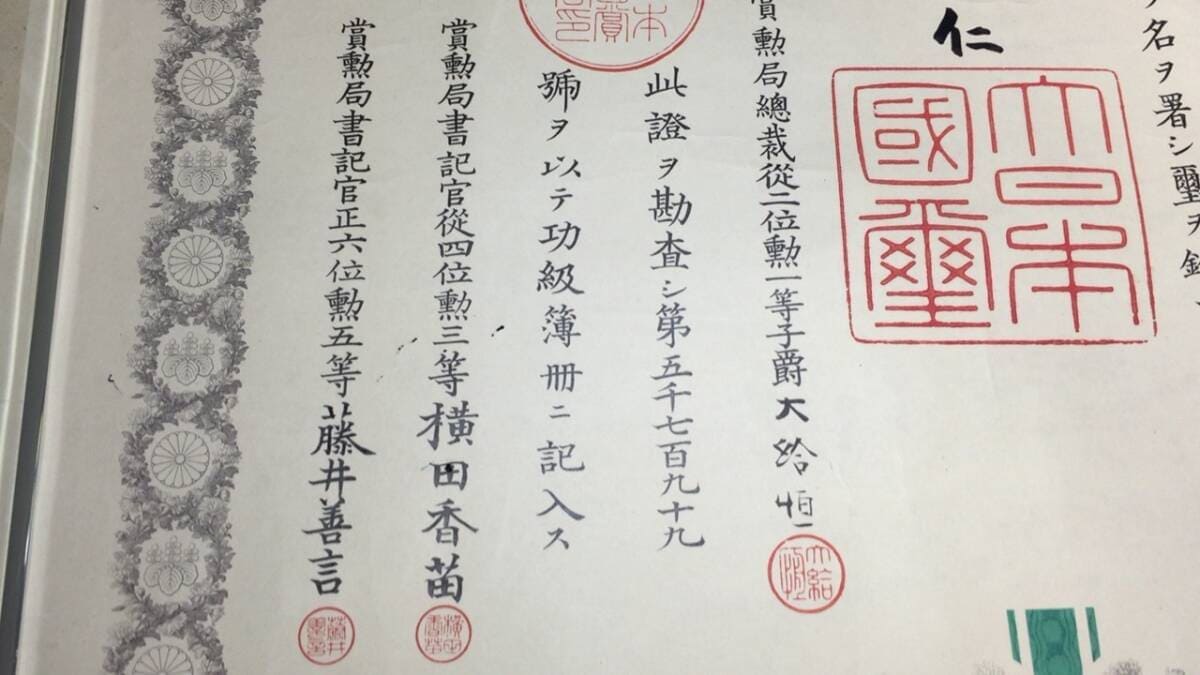 名ヲ署シ璽ヲ
仁
大日本
國璽
賞勲局總裁從二位勲一等子爵大給恒
此證ヲ勘査シ第五千七百九十九
號ヲ以テ功級簿册ニ記入ス
賞勲局書記官從四位勲三等横田香苗
賞勲局書記官正六位勲五等藤井善言